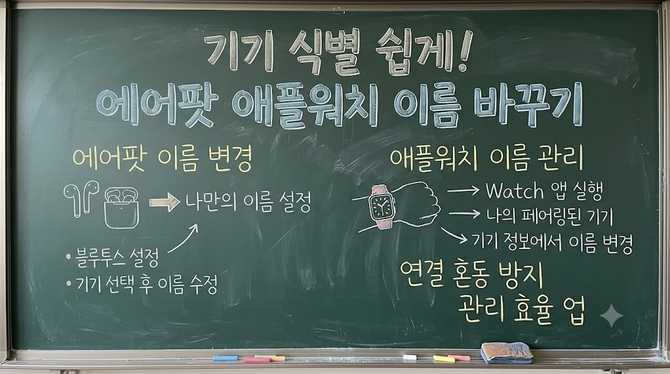 기기 식별 쉽게!
에어팟 애플워치 이름 바꾸기
에어팟 이름 변경
나만의 이름 설정
• 블루투스 설정
• 기기 선택 후 이름 수정
애플워치 이름 관리
Watch 앱 실행
나의 페어링된 기기
기기 정보에서 이름 변경
연결 혼동 방지
관리 효율 업